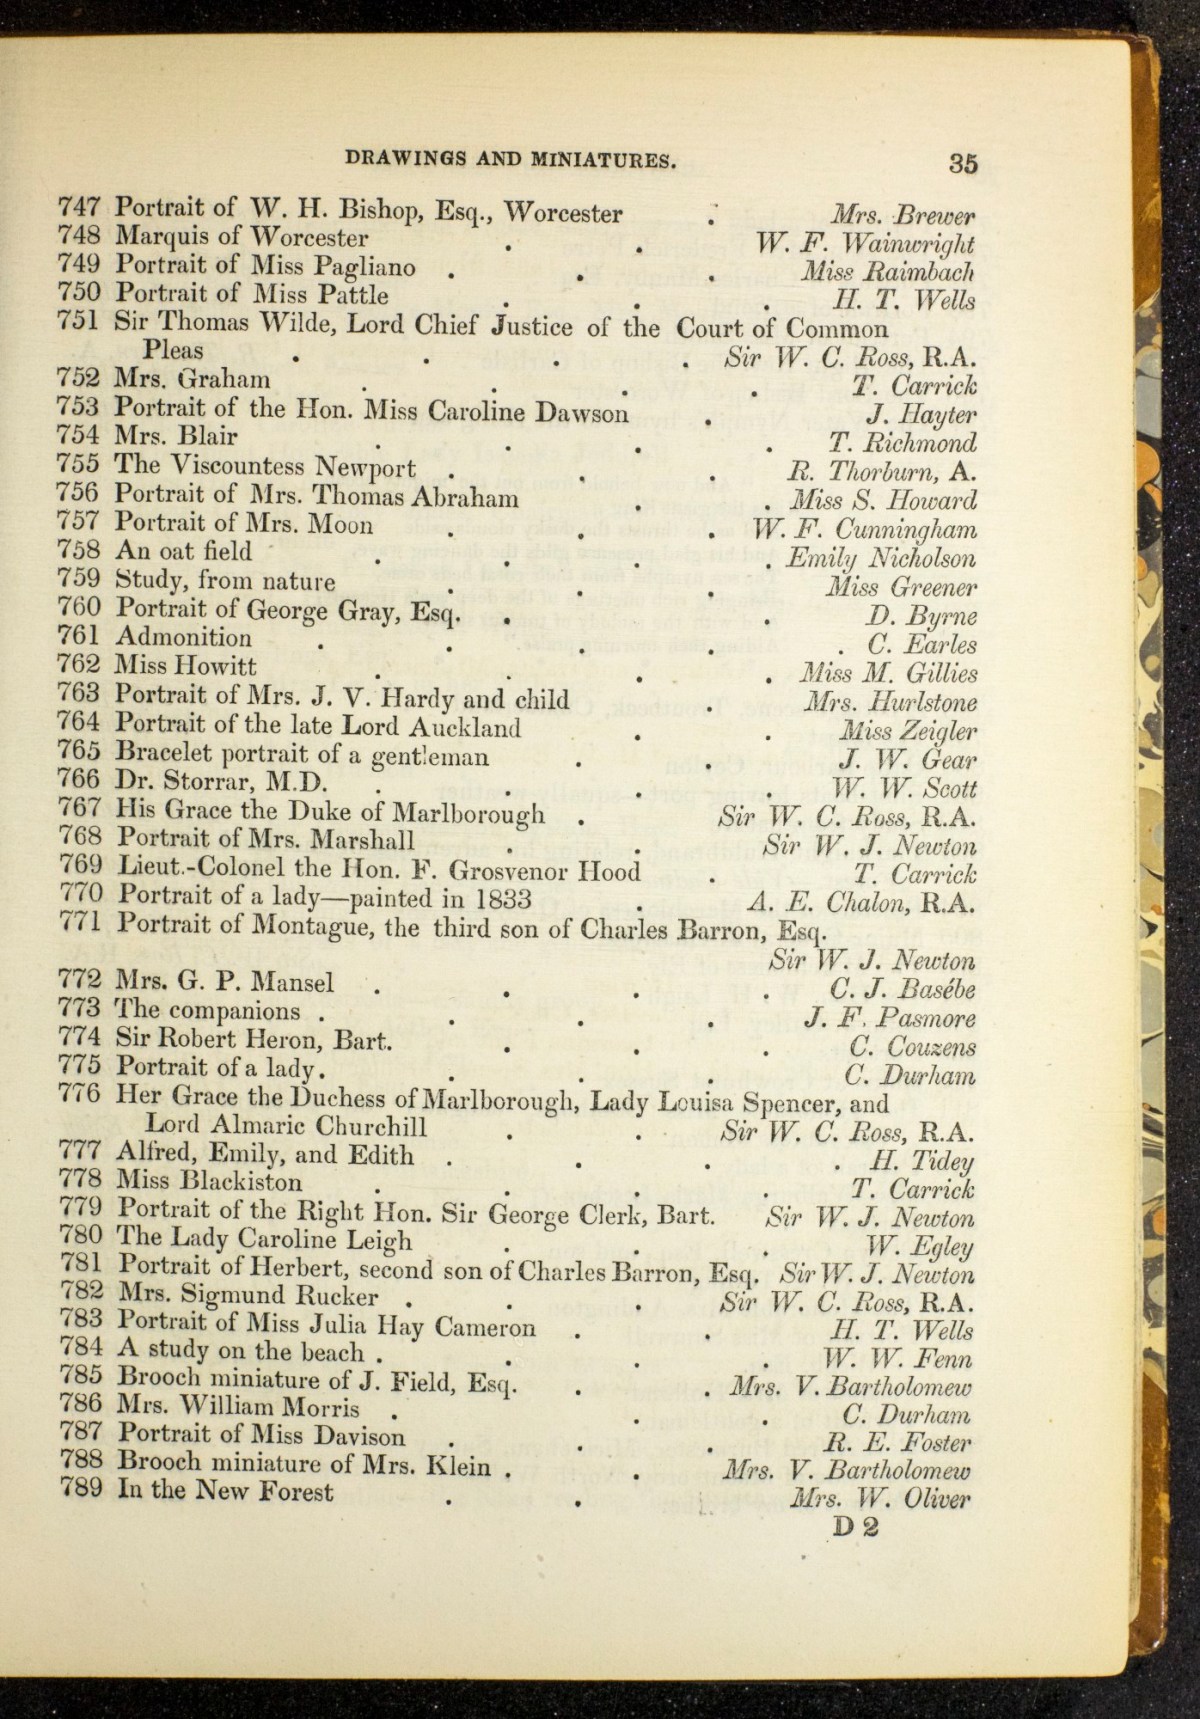 DRAWINGS AND MINIATURES. 35
747 Portrait of W. H. Bishop, Esq., Worcester . Mrs. Brewer
748 Marquis of Worcester . . W. F. Wainwright
749 Portrait of Miss Pagliano . . . Miss Raimbach
750 Portrait of Miss Pattle . . . H. T. Wells
751 Sir Thomas Wilde, Lord Chief Justice of the Court of Common
Pleas . . . . Sir W. C. Ross, R.A.
752 Mrs. Graham . . . . T. Carrick
753 Portrait of the Hon. Miss Caroline Dawson . J. Hayter
754 Mrs. Blair . . . . T. Richmond
755 The Viscountess Newport . . . R. Thorburn, A.
756 Portrait of Mrs. Thomas Abraham . . Miss S. Howard
757 Portrait of Mrs. Moon . . . W. F. Cunningham
758 An oat field . . . . Emily Nicholson
759 Study, from nature . . . Miss Greener
760 Portrait of George Gray, Esq. . . D. Byrne
761 Admonition . . . . . C. Earles
762 Miss Howitt . . . . Miss M. Gillies
763 Portrait of Mrs. J. V. Hardy and child . Mrs. Hurlstone
764 Portrait of the late Lord Auckland . . Miss Zeigler
765 Bracelet portrait of a gentleman . . J. W. Gear
766 Dr. Storrar, M.D. . . . . W. W. Scott
767 His Grace the Duke of Marlborough . Sir W. C. Ross, R.A.
768 Portrait of Mrs. Marshall . . Sir W. J. Newton
769 Lieut.-Colonel the Hon. F. Grosvenor Hood . T. Carrick
770 Portrait of a lady—painted in 1833 . A. E. Chalon, R.A.
771 Portrait of Montague, the third son of Charles Barron, Esq.
Sir W. J. Newton
772 Mrs. G. P. Mansel . . . . C. J. Basébe
773 The companions . . . . J. F. Pasmore
774 Sir Robert Heron, Bart. . . . C. Couzens
775 Portrait of a lady . . . . C. Durham
776 Her Grace the Duchess of Marlborough, Lady Louisa Spencer, and
Lord Almaric Churchill . . Sir W. C. Ross, R.A.
777 Alfred, Emily, and Edith . . . . H. Tidey
778 Miss Blackiston . . . . T. Carrick
779 Portrait of the Right Hon. Sir George Clerk, Bart. Sir W. J. Newton
780 The Lady Caroline Leigh . . . W. Egley
781 Portrait of Herbert, second son of Charles Barron, Esq. Sir W. J. Newton
782 Mrs. Sigmund Rucker . . . Sir W. C. Ross, R.A.
783 Portrait of Miss Julia Hay Cameron . . H. T. Wells
784 A study on the beach . . . . W. W. Fenn
785 Brooch miniature of J. Field, Esq. . . Mrs. V. Bartholomew
786 Mrs. William Morris . . . C. Durham
787 Portrait of Miss Davison . . . R. E. Foster
788 Brooch miniature of Mrs. Klein . . Mrs. V. Bartholomew
789 In the New Forest . . . Mrs. W. Oliver
D 2